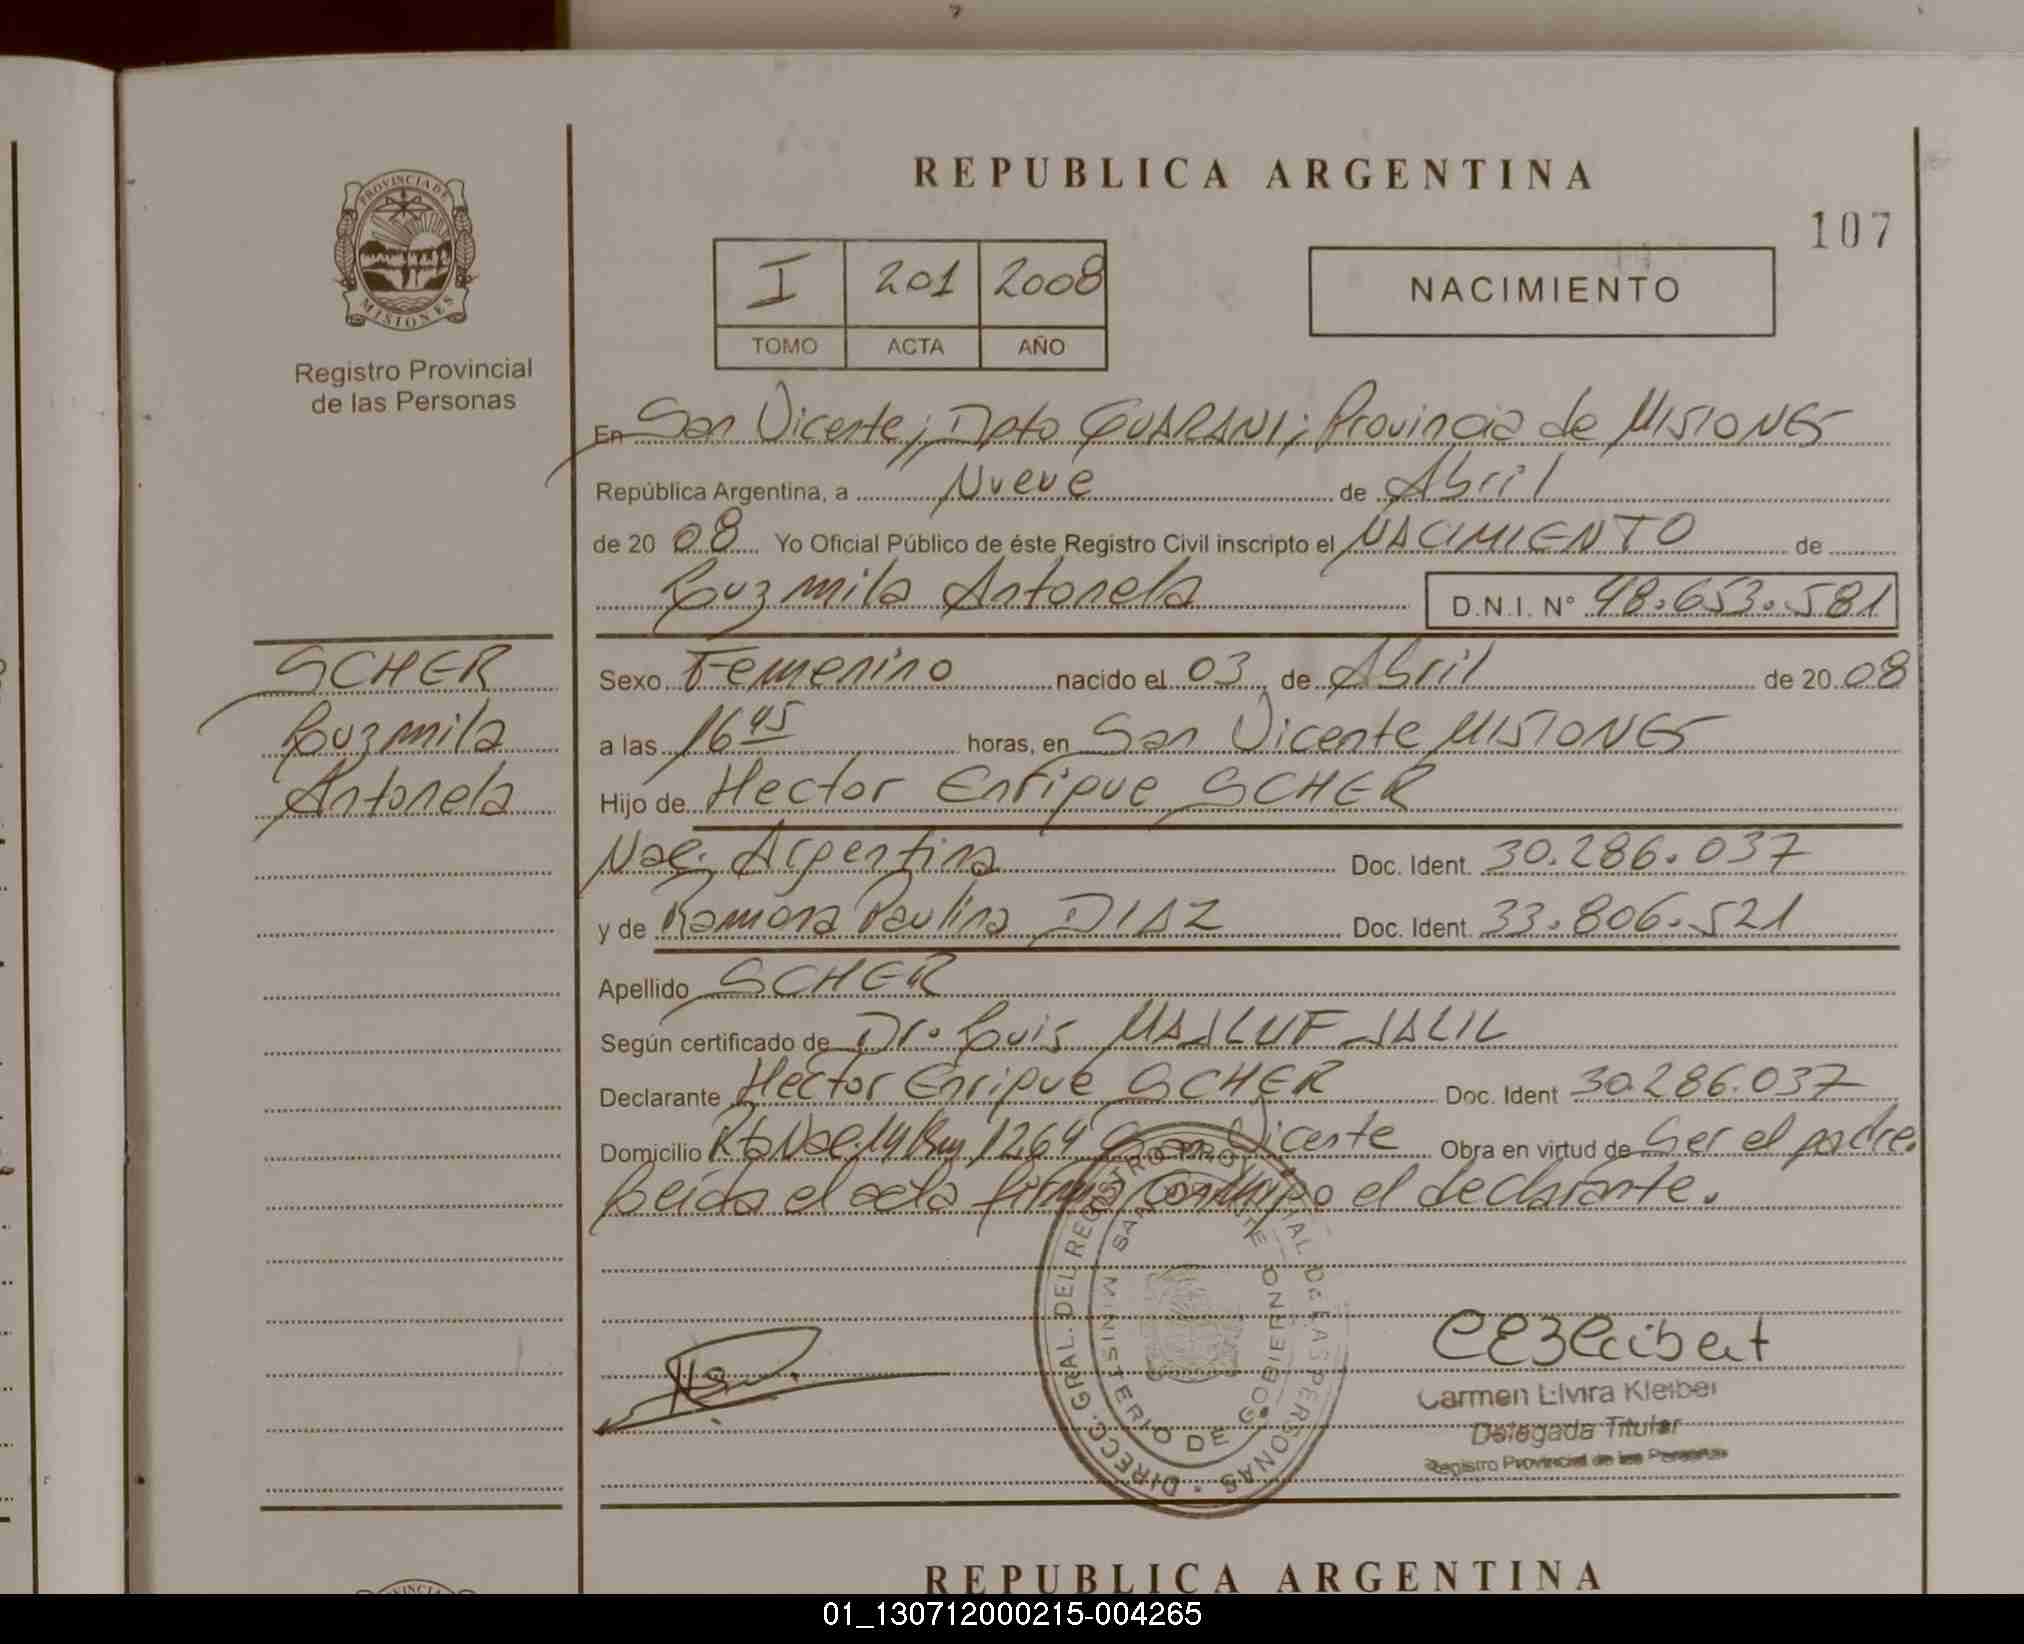 REPUBLICA ARGENTINA
107
PROVINCIA DE
MISIONES
Registro Provincial
de las Personas
I 201 2008
TOMO ACTA AÑO
NACIMIENTO
En San Vicente; Dpto GUARANI; Provincia de MISIONES
República Argentina, a Nueve de Abril
de 2008 Yo Oficial Público de éste Registro Civil inscripto el NACIMIENTO de
Luzmila Antonela D.N.I. N° 48.653.581
SCHER
Luzmila
Antonela
Sexo Femenino nacido el 03 de Abril de 2008
a las 16 45 horas, en San Vicente MISIONES
Hijo de Hector Enrique SCHER
Nac. Argentina Doc. Ident. 30.286.037
y de Ramona Paulina DIAZ Doc. Ident. 33.806.521
Apellido SCHER
Según certificado de Dr. Luis MASLUF JALIL
Declarante Hector Enrique SCHER Doc. Ident 30.286.037
Domicilio Rta Nac. 14 Km 1264 San Vicente Obra en virtud de Ser el padre.
Leida el acta firma conmigo el declarante.
DIRECC. GRAL. DEL REGISTRO PROVINCIAL DE LAS PERSONAS
MINISTERIO DE GOBIERNO
SAN VICENTE
Carmen Elvira Kleiber
Delegada Titular
Registro Provincial de las Personas
REPUBLICA ARGENTINA
01_130712000215-004265